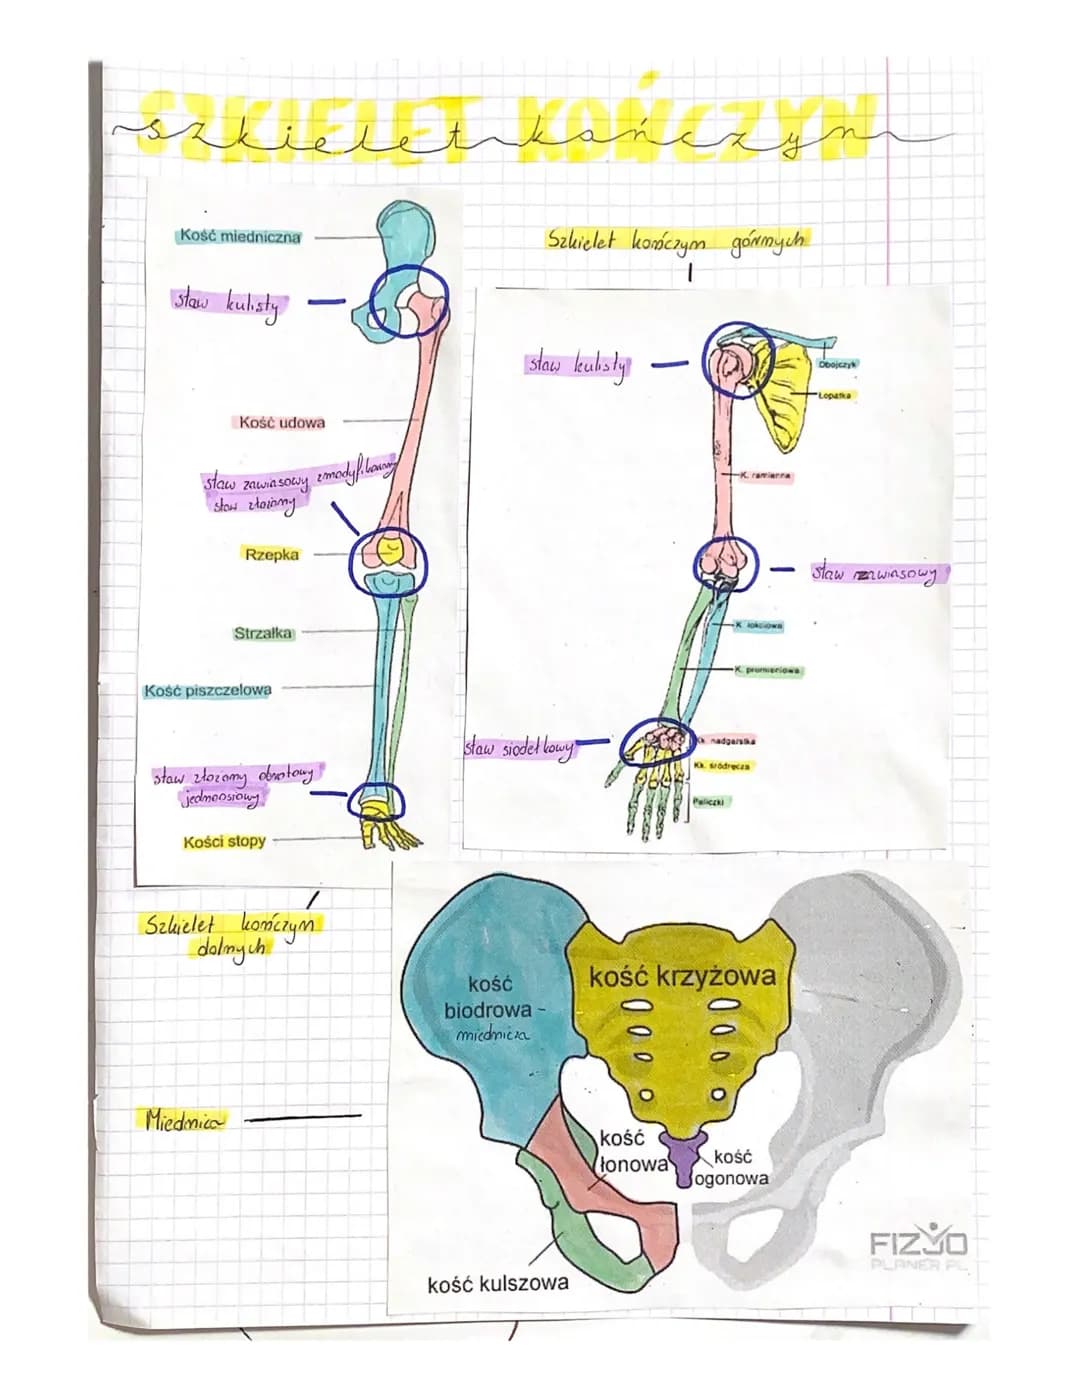 SZKIELET KOŃCZYN
szkielet kończyn
Kość miedniczna
staw kulisty
Kość udowa
staw zawiasowy zmodyfikowany
staw złożony
Rzepka
Strzałka
Kość piszczelowa
staw złożony obrotowy
jednoosiowy
Kości stopy
Szkielet kończyn
dolnych
Szkielet kończyn górnych
staw kulisty
Obojczyk
Łopatka
K. ramienna
staw zawiasowy
K. łokciowa
K. promieniowa
staw siodełkowy
Kk. nadgarstka
Kk. śródręcza
Paliczki
Miednica
kość
biodrowa -
miednicza
kość krzyżowa
kość
łonowa
kość
ogonowa
kość kulszowa
FIZJO
PLANER.PL